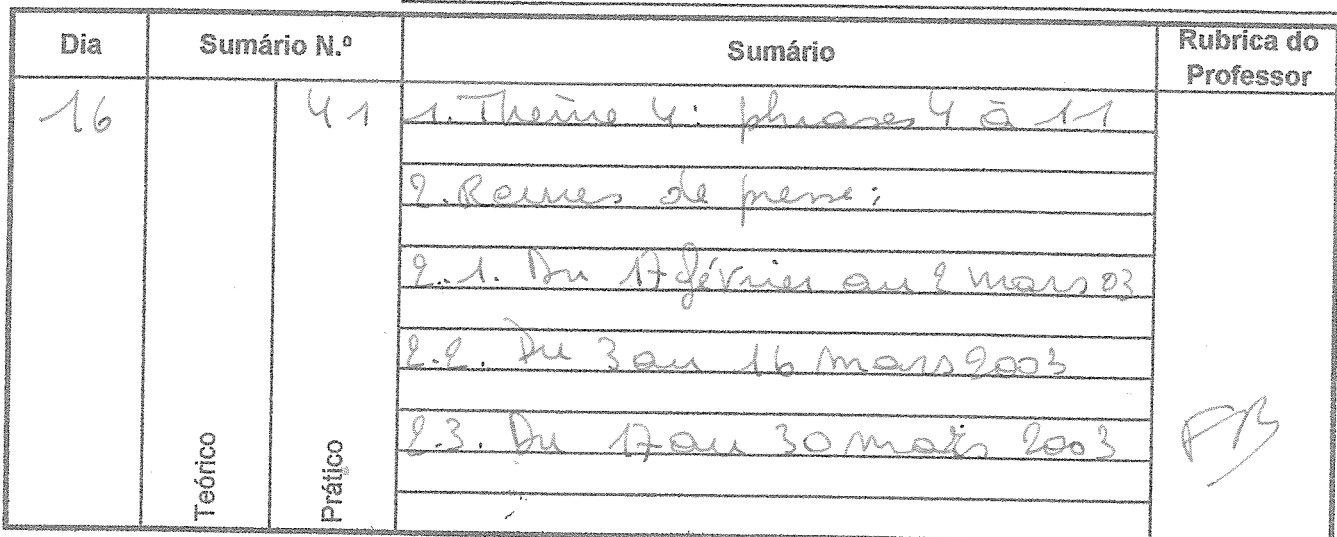 Dia Sumário N.º Sumário Rubrica do Professor
16 41 1. Thème 4: phrases 4 à 11
2. Revues de presse:
2.1. Du 17 février au 2 mars 03
2.2. Du 3 au 16 mars 2003
2.3. Du 17 au 30 mars 2003
Teórico Prático FB